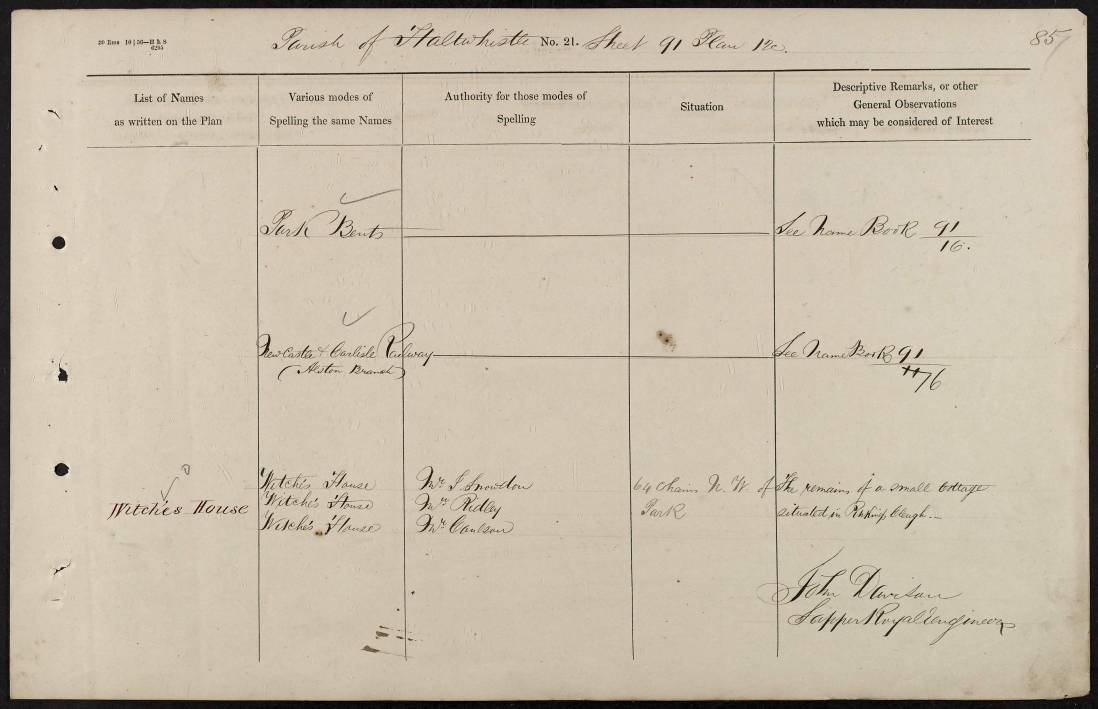 20 Rms 10 | 56—H & S
6295
Parish of Haltwhistle No. 21. Sheet 91 Plan 12c.
85
List of Names
as written on the Plan
Various modes of
Spelling the same Names
Authority for those modes of
Spelling
Situation
Descriptive Remarks, or other
General Observations
which may be considered of Interest
Park Bents
See Name Book 91
16.
Newcastle & Carlisle Railway
(Alston Branch)
See Name Book 91
76
Witche's House
Witche's House
Witche's House
Witche's House
Mr. J. Snowdon
Mr. Ridley
Mr. Coulson
64 Chains N. W. of
Park
The remains of a small Cottage
situated in Clough.
John Davison
Sapper Royal Engineers